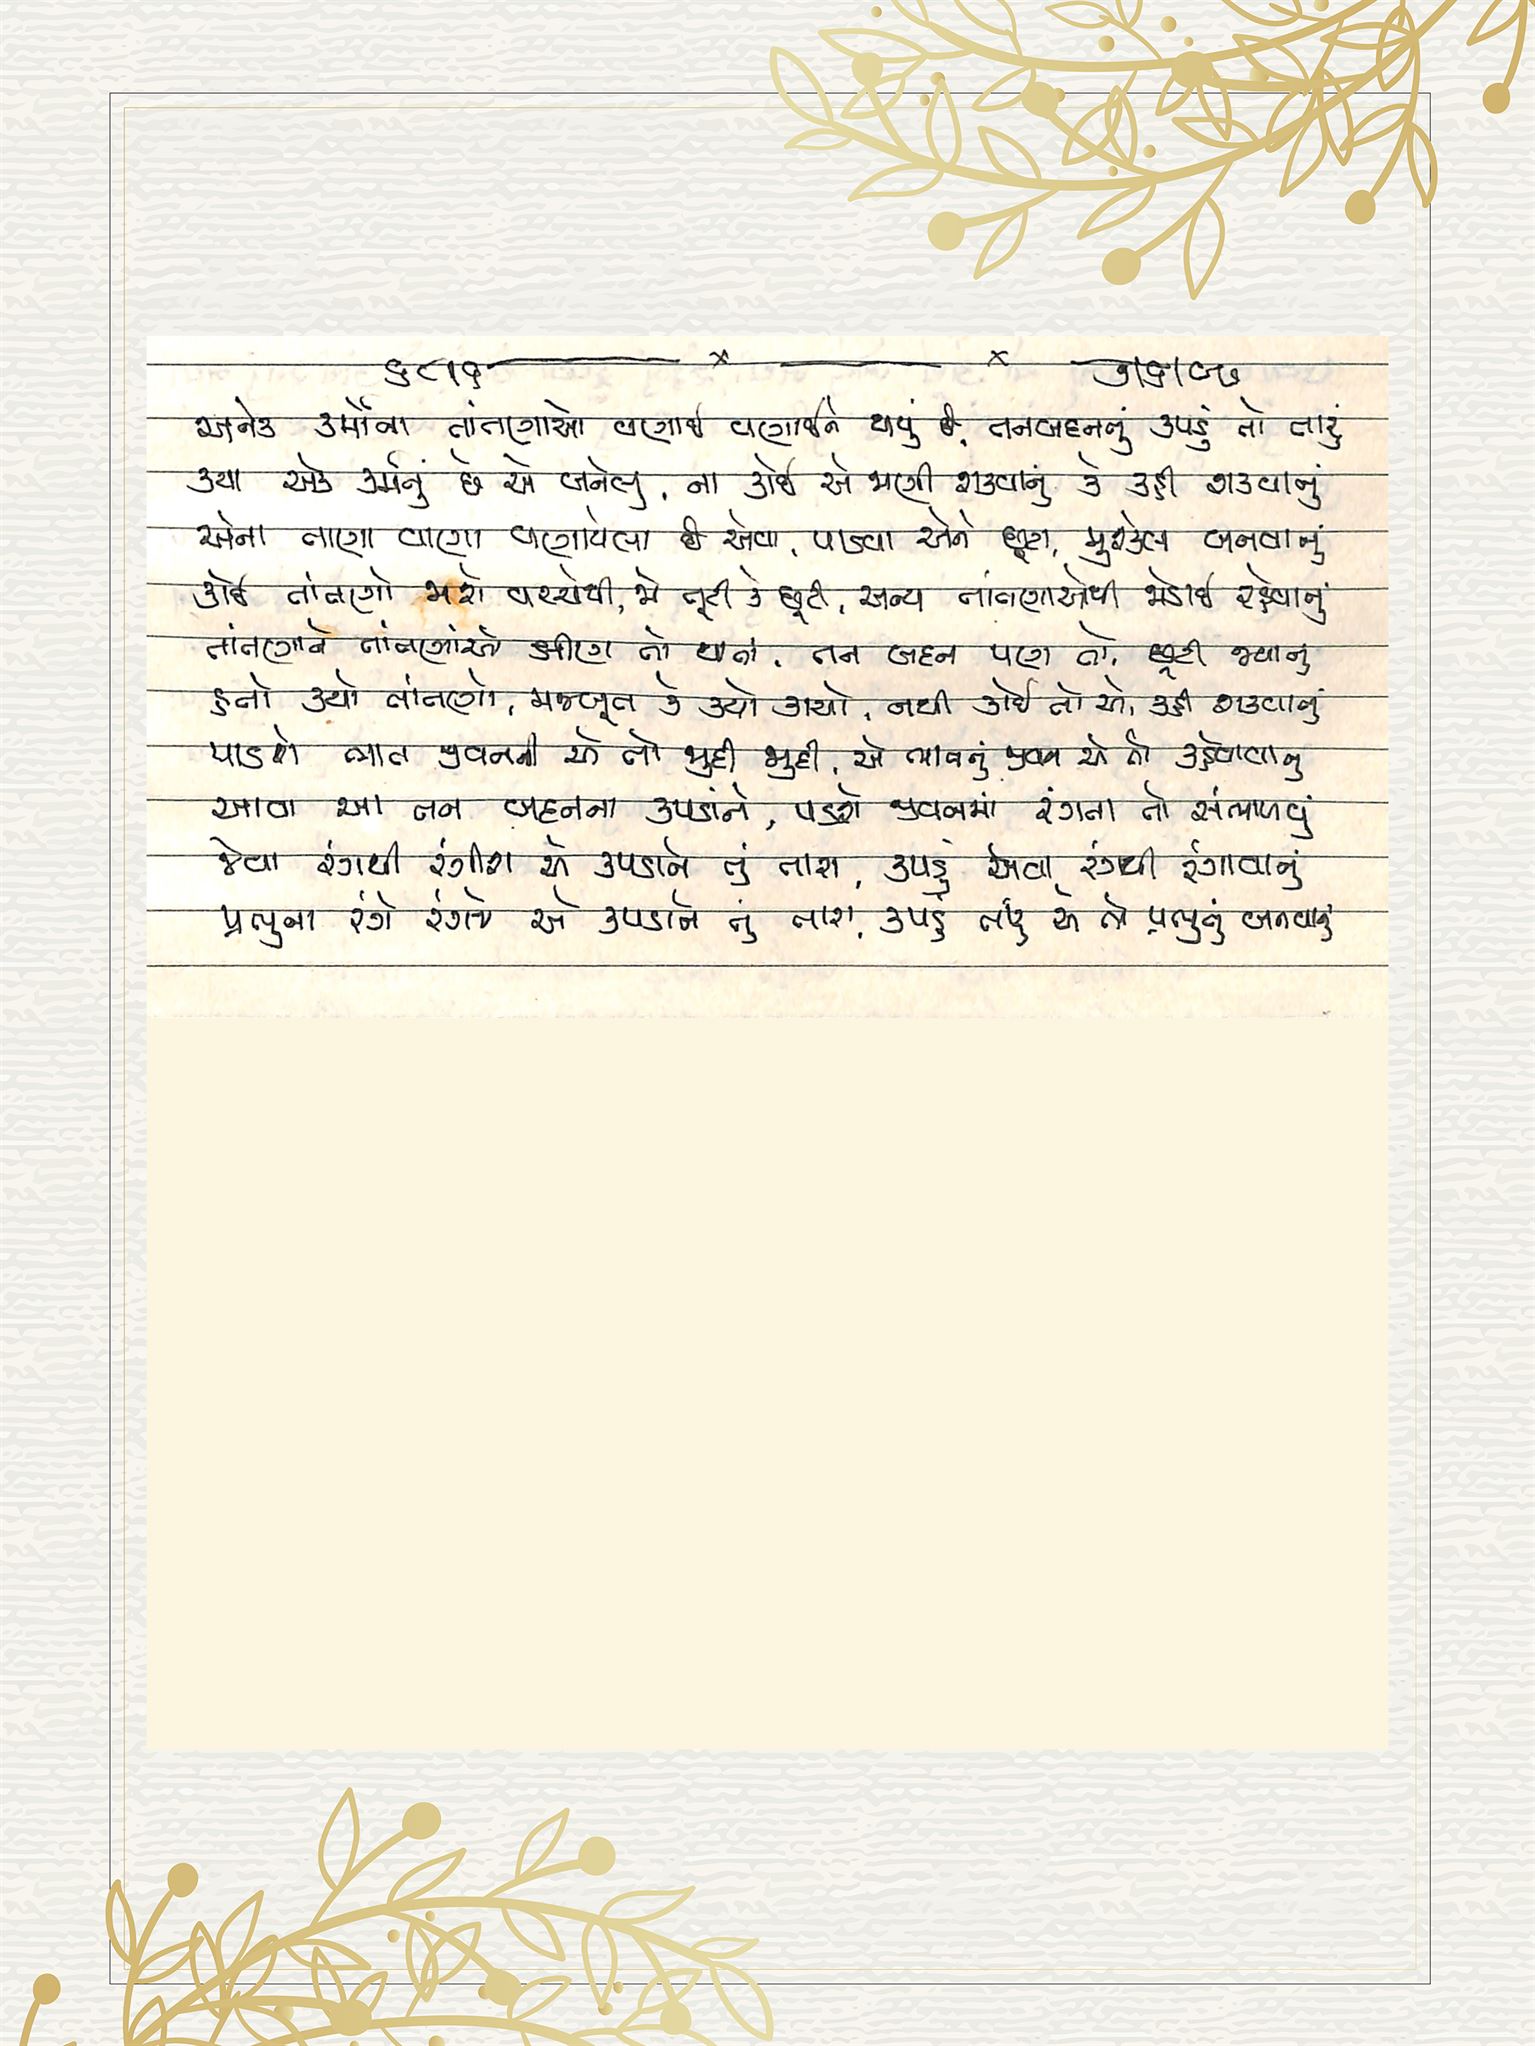 ૬૮૧૬ — x — x ૭/૭/૮૭
અનેક કર્મોના તાંતણાઓ વણાઈ વણાઈને થયું છે, તનબદનનું કપડું તો તારું
કયા એક કર્મનું છે એ બનેલું, ના કોઈ એ ભણી શકવાનું કે કહી શકવાનું
એના તાણા વાણા વણાયેલા છે એવા, પાડવા એને છૂટા, મુશ્કેલ બનવાનું
કોઈ તાંતણો જાશે વચ્ચેથી, જો તૂટી કે છૂટી, અન્ય તાંતણાઓથી જોડાઈ રહેવાનું
તાંતણાને તાંતણાંઓ ક્ષીણ તો થાતાં, તન બદન પણ તો, છૂટી જવાનું
હતો કયો તાંતણો, મજબૂત કે કયો કાચો, નથી કોઈ તો એ, કહી શકવાનું
પાડશે ભાત જીવનની એ તો જુદી જુદી, એ ભાવનું જીવન એ તો કહેવાવાનું
આવા આ તન બદનના કપડાંને, પડશે જીવનમાં રંગતા તો સંભાળવું
જેવા રંગથી રંગીશ એ કપડાને તું તારા, કપડું એવા રંગથી રંગાવાનું
પ્રભુના રંગે રંગજે એ કપડાને તું તારા, કપડું તારું એ તો પ્રભુનું બનવાનું